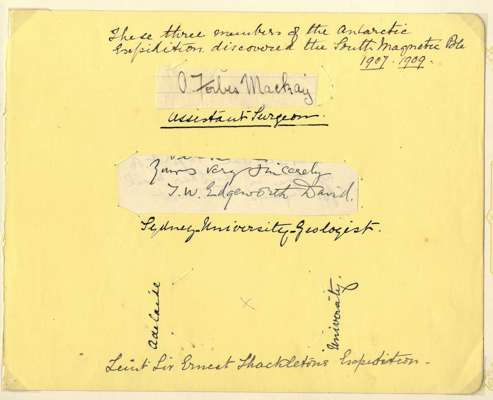 These three members of the Antarctic
Expidition discovered the South Magnetic Pole
1907-1909.
O. Forbes Mackay
Assistant Surgeon.
Yours very sincerely
T.W. Edgeworth David.
Sydney-University-Geologist.
Adelaide
University.
Leiut Sir Ernest Shackletons Expidition-